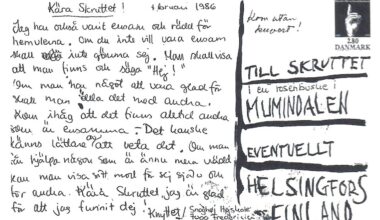 Kära Skruttet! februari 1986
Jag har också varit ensam och rädd för
hemulerna. Om du inte vill vara ensam
skall inte gömma sej. Man skall visa
att man finns och säga "Hej"!
Om man har något att vara glad för
skall man dela det med andra.
Kom ihåg att det finns alltid andra
som är ensamma. Det kanske
känns lättare att veta det. Om man
kan hjälpa någon som är ännu mera rädd
kan man visa sitt mod för sej själv och
för andra. Kära Skruttet, jag är glad
för att jag funnit dej. Knyttet!
Snoghøj Højskole
7000 Fredericia
Kom utan
kuvert!
2.80
DANMARK
TILL SKRUTTET
i en rosenbuske i
MUMINDALEN
EVENTUELLT
HELSINGFORS
FINLAND